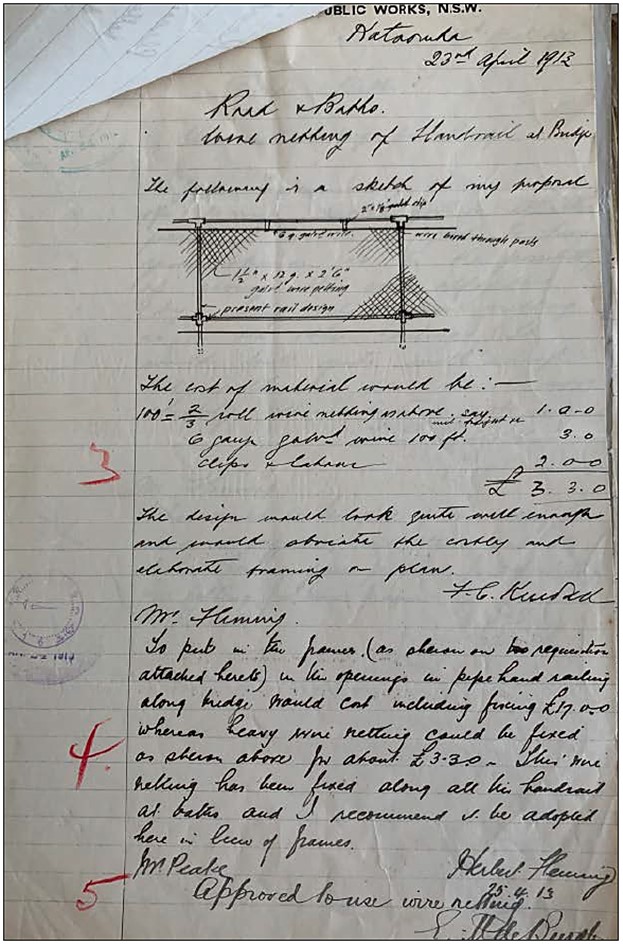 PUBLIC WORKS, N.S.W.
Katoomba
23rd April 1913
Road & Baths.
Wire netting of Handrail at Bridge
The following is a sketch of my proposal
galvd clip
6 g. galvd wire.
wire bored through posts
1½" x 12g. x 2'6"
galvd wire netting
present rail design
The cost of material would be :—
100' = 2/3 roll wire netting as above. say 1.0.0
incl. freight
6 gauge galvd wire 100 ft. 3.0
clips & labour 2.0.0
£ 3.3.0
The design would look quite well enough
and would obviate the costly and
elaborate framing on plan.
Mr. Fleming.
To put in the frames (as shewn on requisition
attached hereto) in the openings in pipe hand railing
along bridge would cost including fixing £17.0.0
whereas heavy wire netting could be fixed
as shewn above for about £3.3.0 – This wire
netting has been fixed along all the handrail
at baths and I recommend it be adopted
here in lieu of frames.
Mr Peake
Herbert Fleming
25.4.13
Approved to use wire netting.
3
4.
5